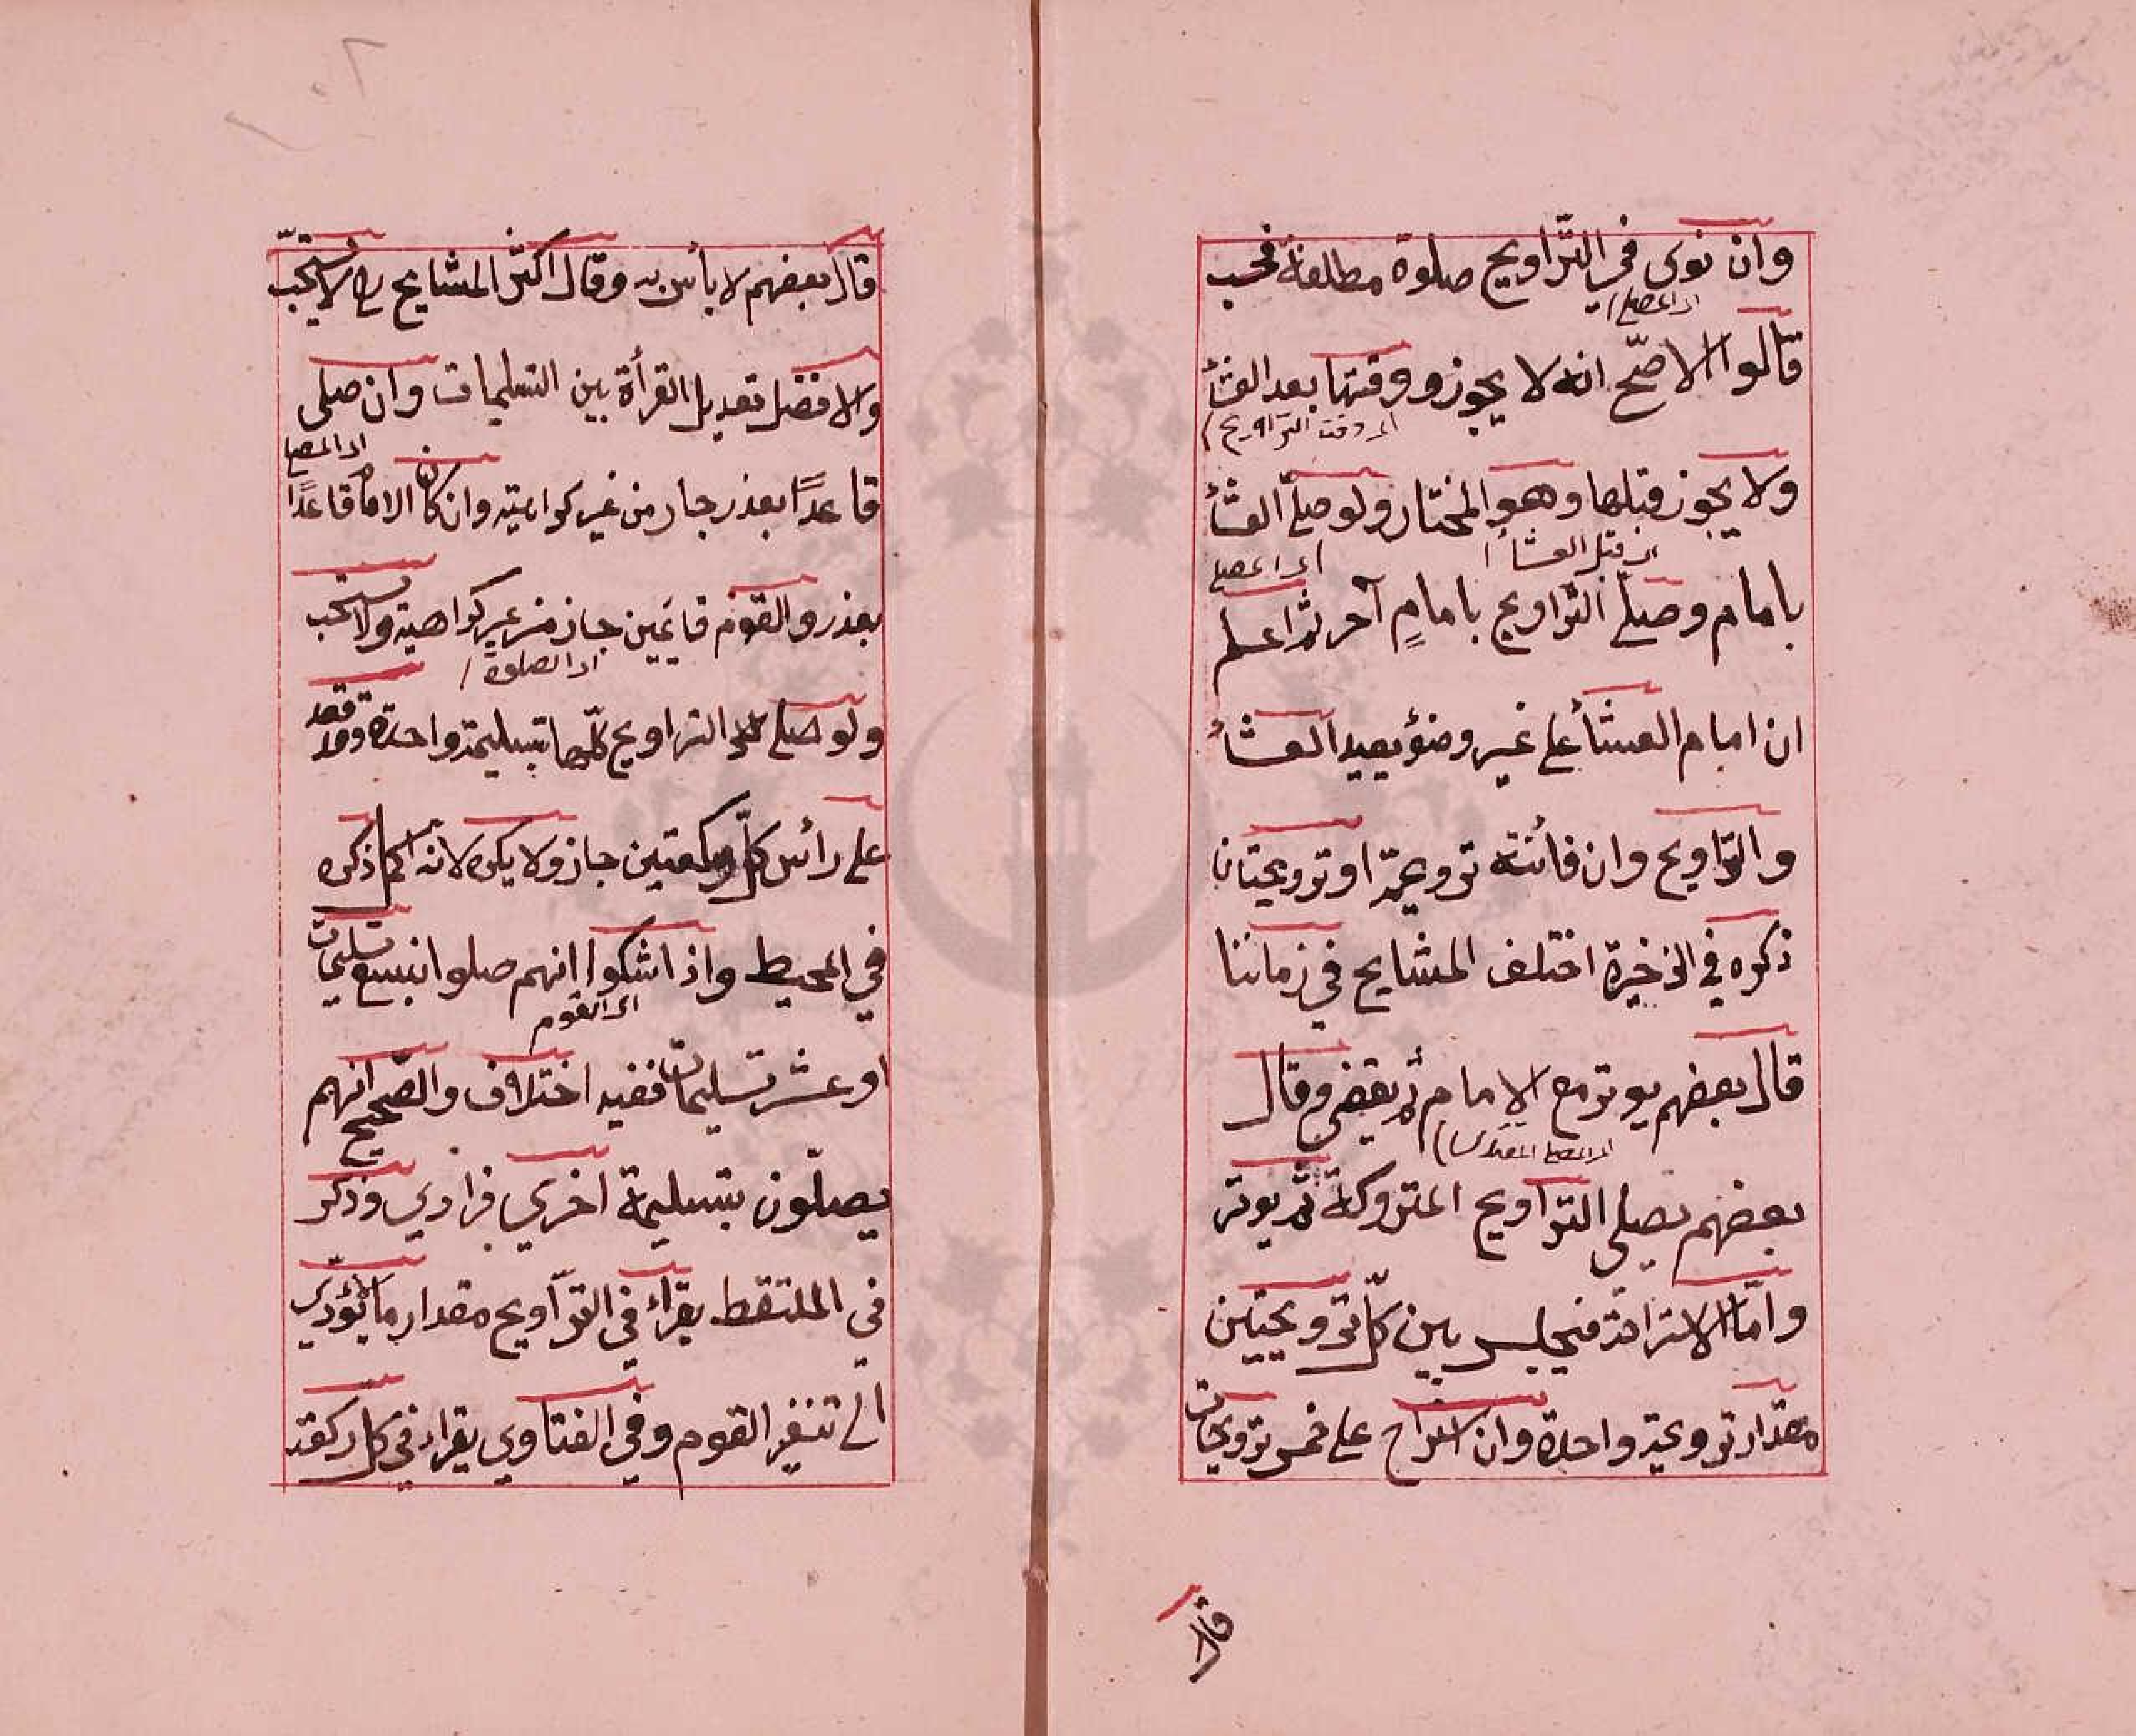 وان نوى في التّراويح صلوة مطلقة فحسب
اى المصلى
قالوا الاصحّ انه لا يجوز ووقتها بعد العشأ
اى وقت التراويح
ولا يجوز قبلها وهو المختار ولو صلى العشأ
اى قبل العشأ
اى المصلى
بامام وصلى التّراويح بامامٍ آخر ثم اعلم
ان امام العشأ على غير وضؤ يعيد العشأ
والتراويح وان فائتة ترويحة او ترويحتان
ذكره في الذخيرة اختلف المشايح في زماننا
قال بعضهم يوتر مع الامام ثم يقضي وقال
اى المصلى المقتدى
بعضهم يصلى التراويح المتروكة ثم يوتر
وامّا الاستراحة فيجلس بين كلّ ترويحتين
مقدار ترويحة واحدة وان استراح على خمس ترويحات
قال
قال بعضهم لا بأس به وقال اكثر المشايح لا يستحبّ
والافضل تعديل القرأة بين التسليمات وان صلى
اى المصلى
قاعدًا بعذر جاز من غير كراهية وان كان الامام قاعدًا
بعذر والقوم قائمين جاز من غير كراهية ولا يستحب
اى الصلوة
ولو صلى التراويح كلّها بتسليمة واحدة وقد قعد
على رأس كلّ ركعتين جاز ولا يكره لانه اكمل ذكره
في المحيط واذا شكوا انهم صلوا تسع تسليمات
اى القوم
او عشر تسليمات ففيه اختلاف والصّحيح انهم
يصلّون بتسليمة اخرى فرادي وذكر
في الملتقط يقراء في التّراويح مقدار ما لا يؤدّي
الى تنفير القوم وفي الفتاوي يقراء في كل ركعة